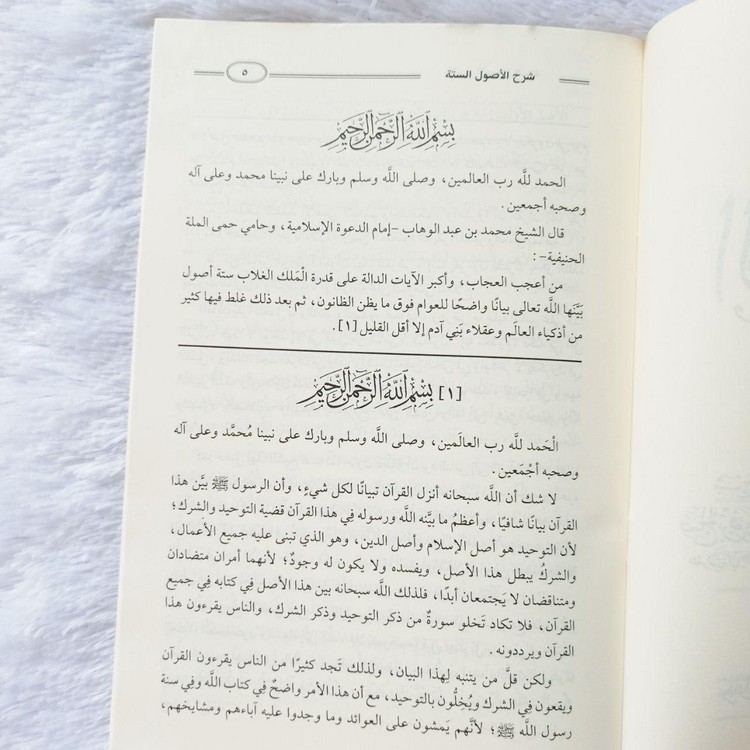 شرح الأصول الستة
٥
بِسْمِ اللَّهِ الرَّحْمَنِ الرَّحِيمِ
الحمد للَّه رب العالمين، وصلى اللَّه وسلم وبارك على نبينا محمد وعلى آله
وصحبه أجمعين.
قال الشيخ محمد بن عبد الوهاب -إمام الدعوة الإسلامية، وحامي حمى الملة
الحنيفية-:
من أعجب العجاب، وأكبر الآيات الدالة على قدرة الْمَلك الغلاب ستة أصول
بَيَّنَها اللَّه تعالى بيانًا واضحًا للعوام فوق ما يظن الظانون، ثم بعد ذلك غلط فيها كثير
من أذكياء العالَم وعقلاء بَنِي آدم إلا أقل القليل [١].
[١] بِسْمِ اللَّهِ الرَّحْمَنِ الرَّحِيمِ
الْحَمد للَّه رب العالَمين، وصلى اللَّه وسلم وبارك على نبينا مُحمَّد وعلى آله
وصحبه أجْمَعين.
لا شك أن اللَّه سبحانه أنزل القرآن تبيانًا لكل شيءٍ، وأن الرسول ﷺ بيَّن هذا
القرآن بيانًا شافيًا، وأعظمُ ما بيَّنه اللَّه ورسوله فِي هذا القرآن قضية التوحيد والشرك؛
لأن التوحيد هو أصل الإسلام وأصل الدين، وهو الذي تبنى عليه جميع الأعمال،
والشركُ يبطل هذا الأصل، ويفسده ولا يكون له وجودٌ؛ لأنهما أمران متضادان
ومتناقضان لا يَجتمعان أبدًا، فلذلك اللَّه سبحانه بين هذا الأصل فِي كتابه فِي جميع
القرآن، فلا تكاد تَخلو سورةٌ من ذكر التوحيد وذكر الشرك، والناس يقرءون هذا
القرآن ويرددونه.
ولكن قلَّ من يتنبه لِهذا البيان، ولذلك تَجد كثيرًا من الناس يقرءون القرآن
ويقعون فِي الشرك ويُخِلُّون بالتوحيد، مع أن هذا الأمر واضحٌ فِي كتاب اللَّه وفِي سنة
رسول اللَّه ﷺ؛ لأنَّهم يَمشون على العوائد وما وجدوا عليه آباءهم ومشايخهم،